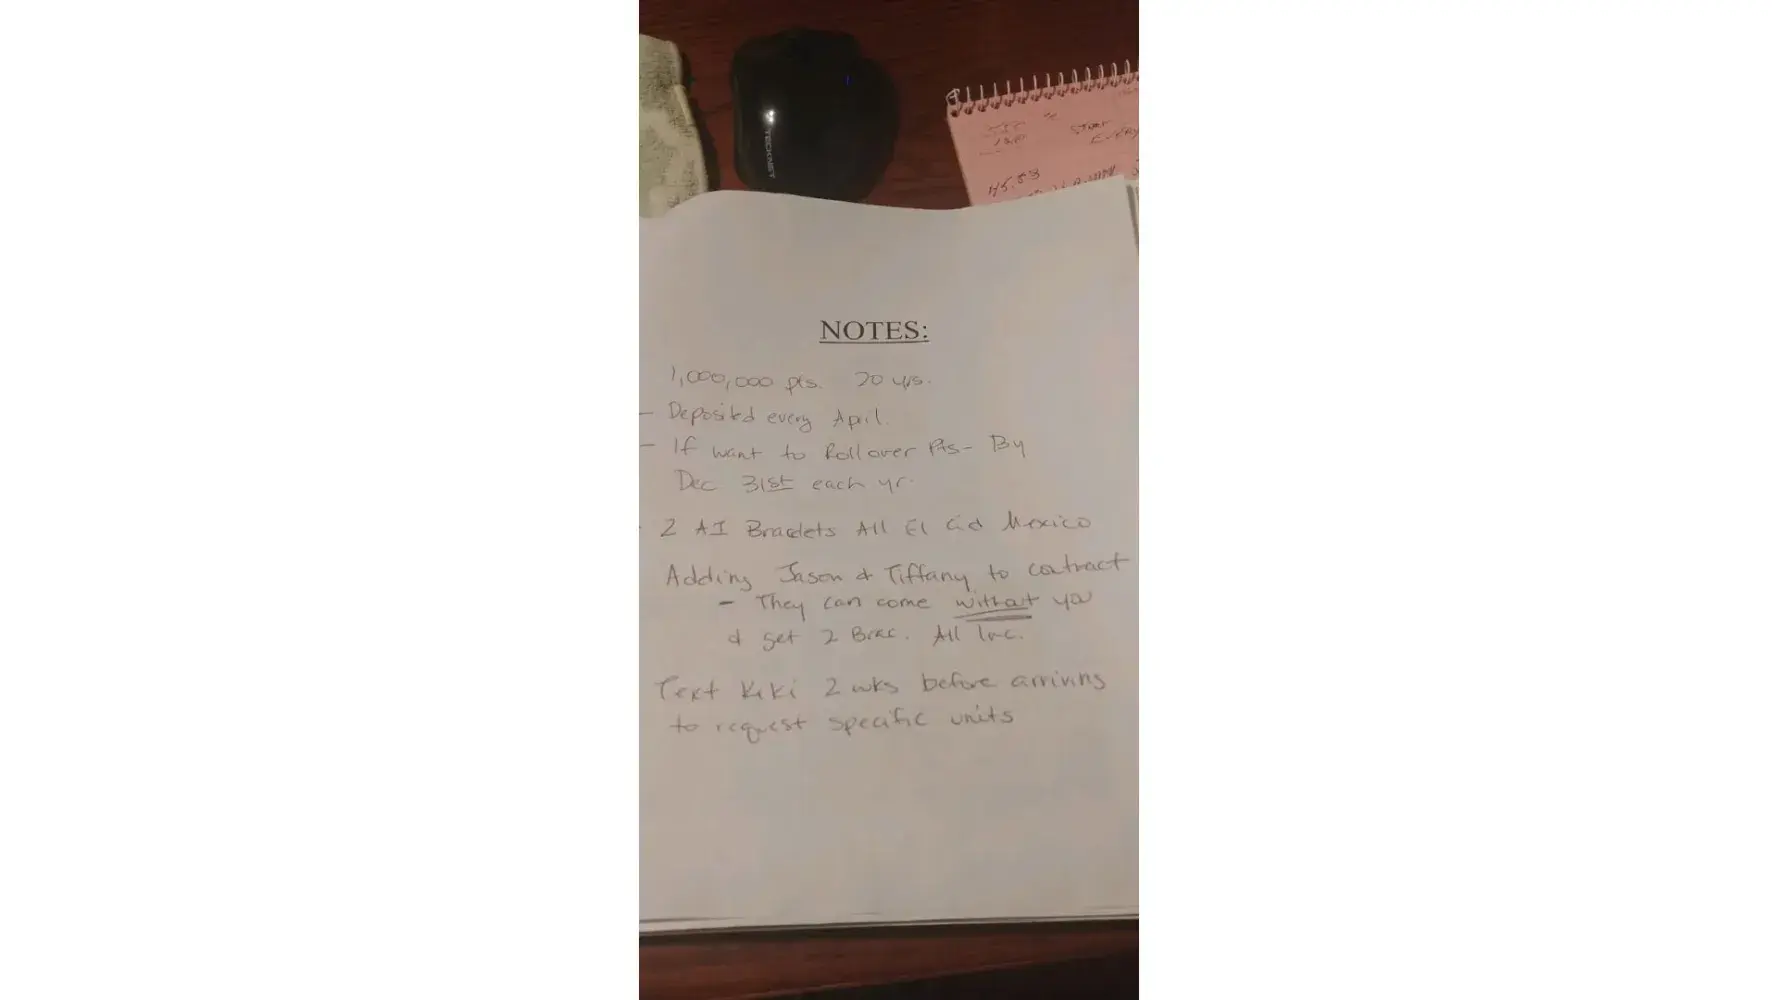 TECKNET
START
EVERY
45.53
NOTES:
1,000,000 pts. 20 yrs.
- Deposited every April.
- If want to Rollover Pts- By
Dec 31st each yr.
- 2 AI Bracelets All El Cid Mexico
Adding Jason & Tiffany to contract
- They can come without you
& get 2 Brac. All Inc.
Text Kiki 2 wks before arriving
to request specific units